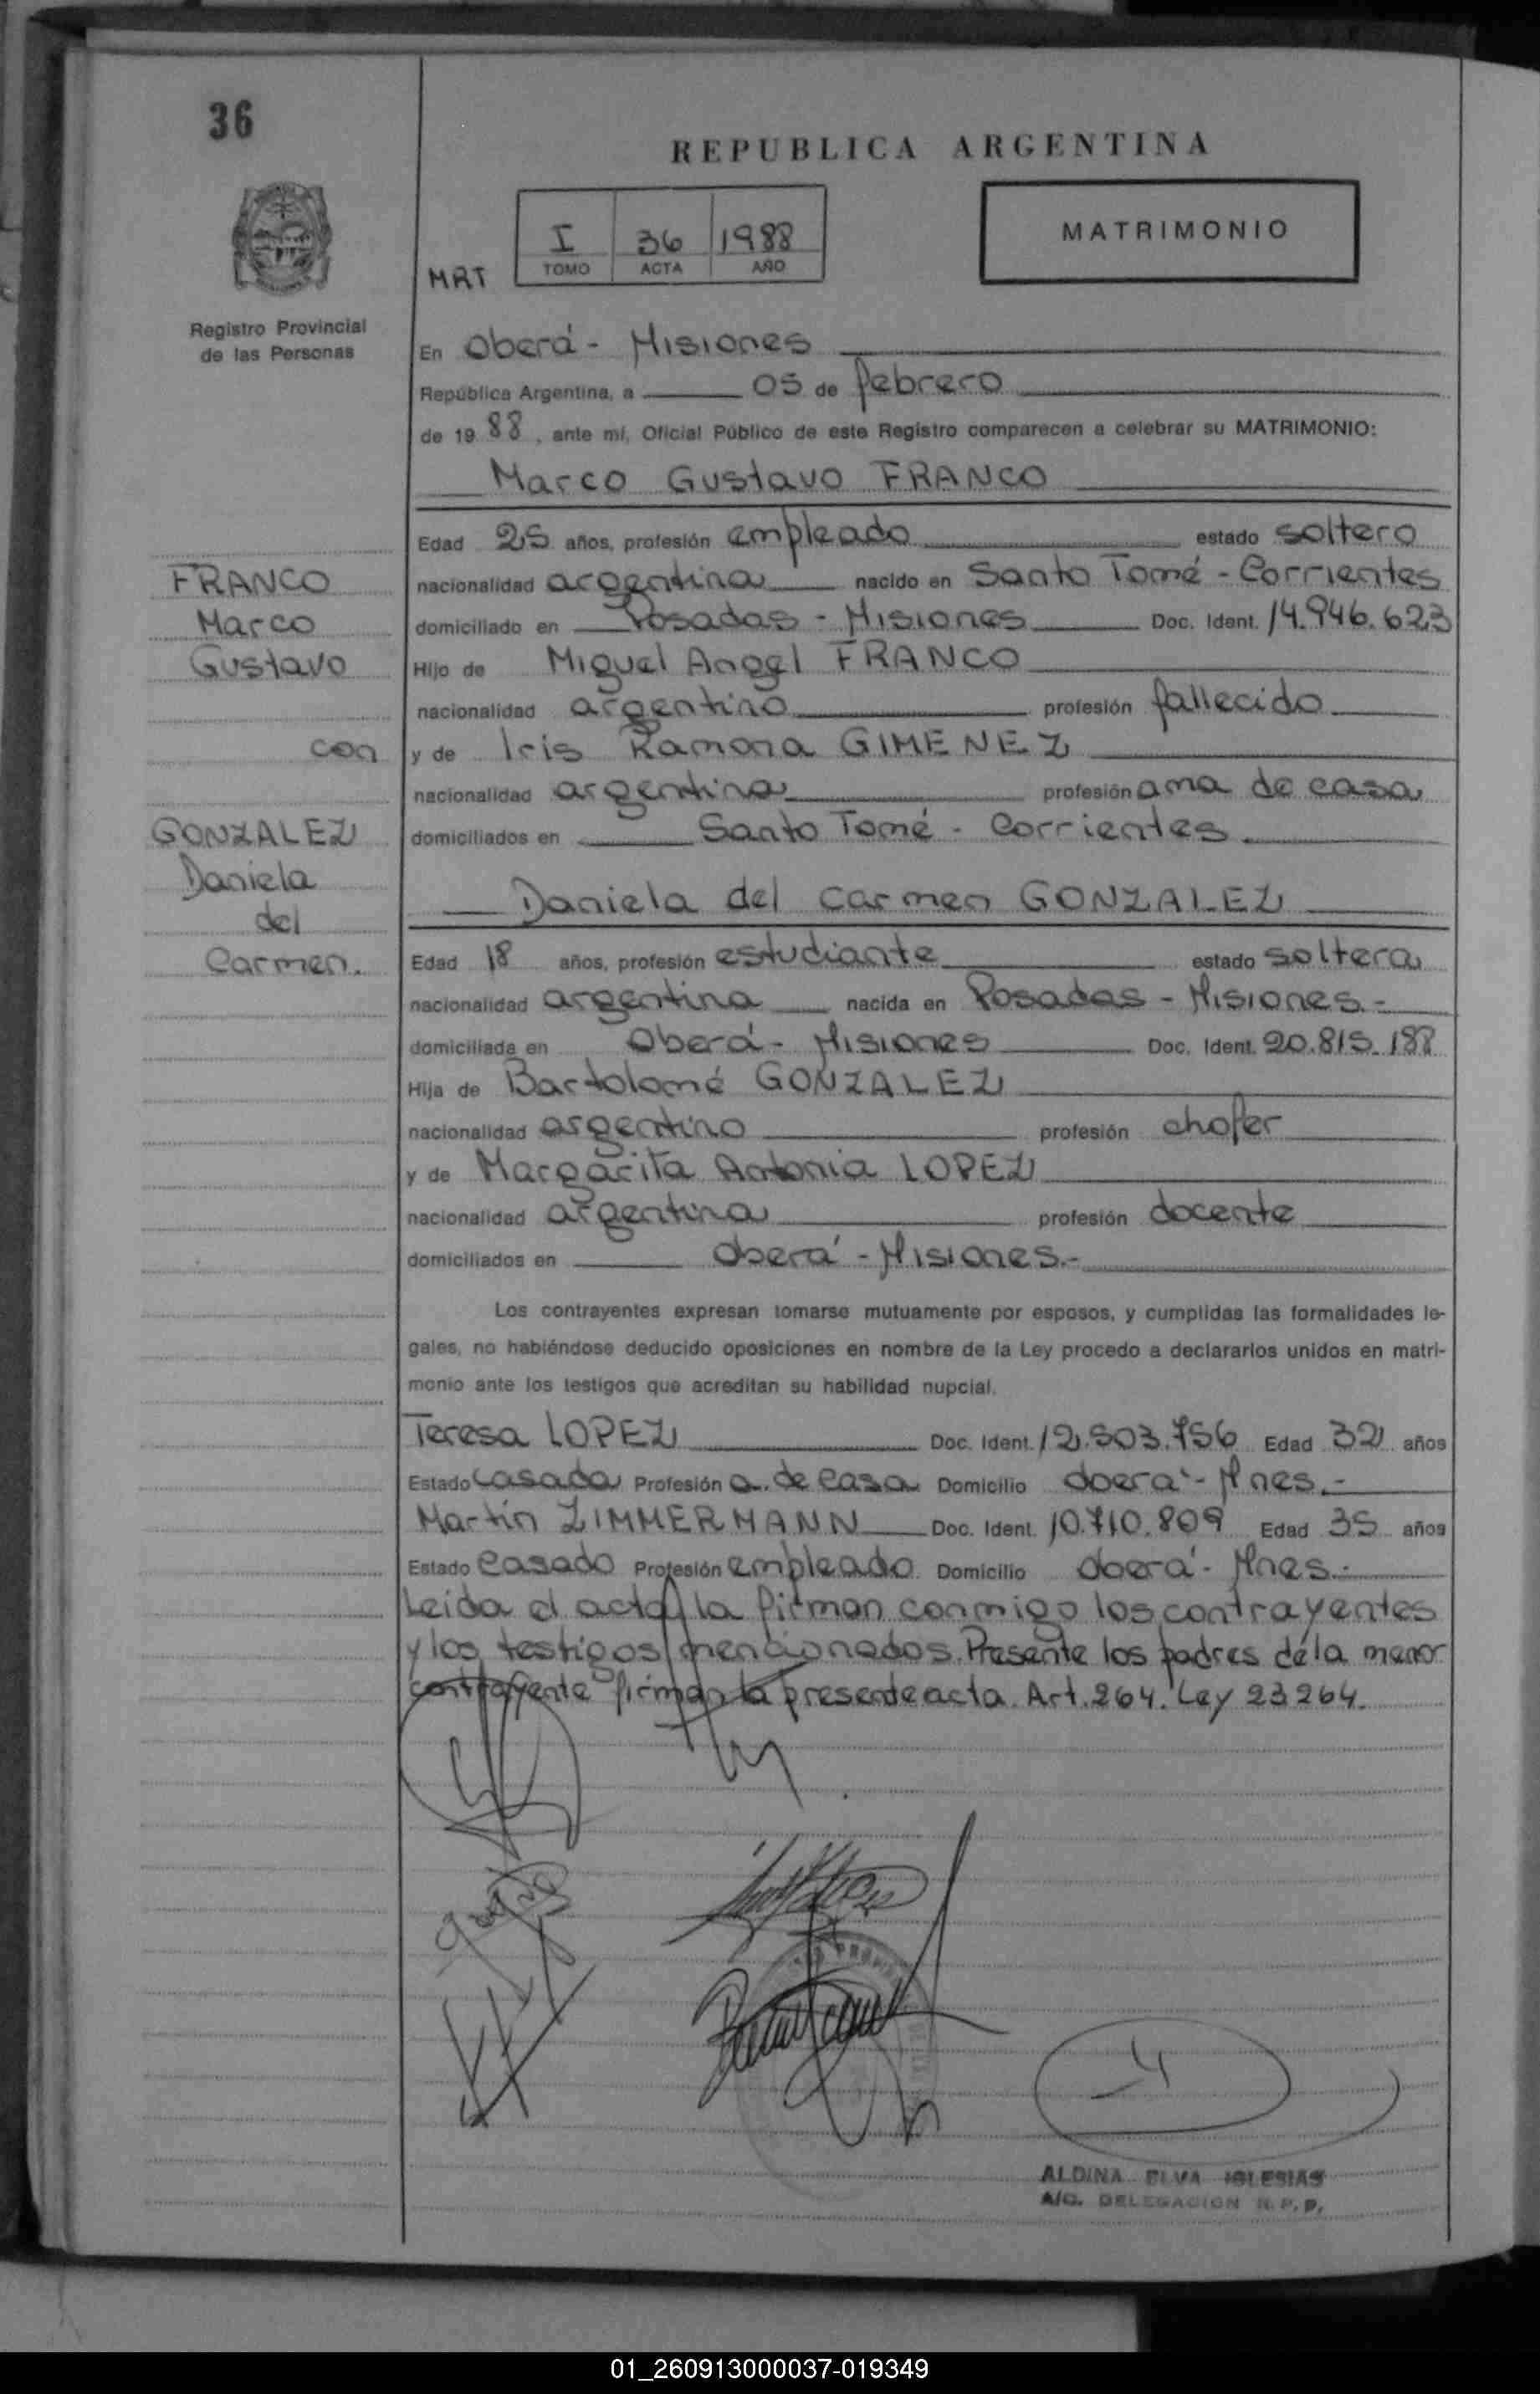 36
REPUBLICA ARGENTINA
I 36 1988
TOMO ACTA AÑO
MRT
MATRIMONIO
Registro Provincial
de las Personas
En Oberá - Misiones
República Argentina, a 05 de febrero
de 1988, ante mí, Oficial Público de este Registro comparecen a celebrar su MATRIMONIO:
Marco Gustavo FRANCO
Edad 25 años, profesión empleado estado soltero
FRANCO
Marco
Gustavo
con
GONZALEZ
Daniela
del
Carmen.
nacionalidad argentina nacido en Santo Tomé - Corrientes
domiciliado en Posadas - Misiones Doc. Ident. 14.946.623
Hijo de Miguel Angel FRANCO
nacionalidad argentino profesión fallecido
y de Iris Ramona GIMENEZ
nacionalidad argentina profesión ama de casa
domiciliados en Santo Tomé - Corrientes
Daniela del Carmen GONZALEZ
Edad 18 años, profesión estudiante estado soltera
nacionalidad argentina nacida en Posadas - Misiones.-
domiciliada en Oberá - Misiones Doc. Ident. 20.815.188
Hija de Bartolomé GONZALEZ
nacionalidad argentino profesión chofer
y de Margarita Antonia LOPEZ
nacionalidad argentina profesión docente
domiciliados en Oberá - Misiones.-
Los contrayentes expresan tomarse mutuamente por esposos, y cumplidas las formalidades le-
gales, no habiéndose deducido oposiciones en nombre de la Ley procedo a declararlos unidos en matri-
monio ante los testigos que acreditan su habilidad nupcial.
Teresa LOPEZ Doc. Ident. 12.503.756 Edad 32 años
Estado casada Profesión a. de casa Domicilio Oberá - Mnes.-
Martín ZIMMERMANN Doc. Ident. 10.710.809 Edad 35 años
Estado casado Profesión empleado Domicilio Oberá - Mnes.-
Leida el acta, la firman conmigo los contrayentes
y los testigos mencionados. Presente los padres de la menor
contrayente firman la presente acta. Art. 264. Ley 23264.
ALDINA ELVA IGLESIAS
A/C. DELEGACION R. P. P.
01_260913000037-019349